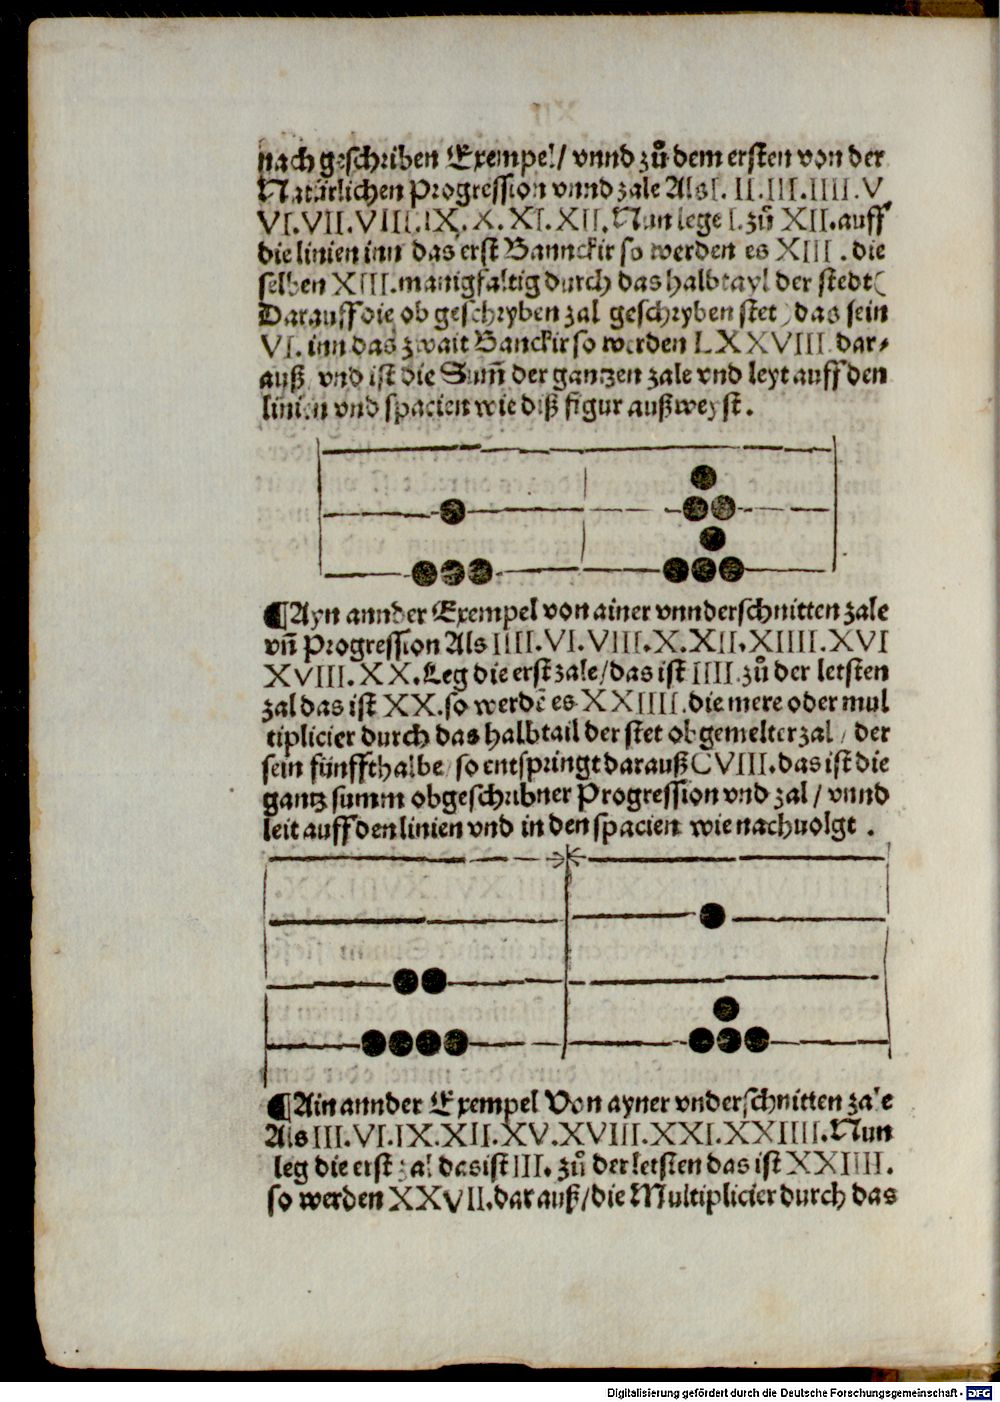 nach geschriben Exempel/ vnnd zů dem ersten von der
Natürlichen Progression vnnd zale Als I. II. III. IIII. V
VI. VII. VIII. IX. X. XI. XII. Nun lege I. zů XII. auff
die linien inn das erst Bannckir so werden es XIII . die
selben XIII. manigfaltig durch das halbtayl der stedt (
Darauff die ob geschryben zal geschryben stet ) das sein
VI. inn das zwait Banckir so werden LXXVIII. dar⸗
auß / vnd ist die Sum̃ der gantzen zale vnd leyt auff den
linien vnd spacien wie diß figur außweyst .
¶ Ayn annder Exempel von ainer vnnderschnitten zale
vn̄ Progression Als IIII. VI. VIII. X. XII. XIIII. XVI
XVIII. XX. Leg die erst zale/ das ist IIII. zů der letsten
zal das ist XX. so werdē es XXIIII. die mere oder mul
tiplicier durch das halbtail der stet obgemelter zal / der
sein fünffthalbe / so entspringt darauß CVIII. das ist die
gantz summ obgeschribner Progression vnd zal / vnnd
leit auff den linien vnd in den spacien wie nachuolgt .
¶ Ain annder Exempel Von ayner vnderschnitten zale
Als III. VI. IX. XII. XV. XVIII. XXI. XXIIII. Nun
leg die erst zal das ist III. zů der letsten das ist XXIIII.
so werden XXVII. dar auß / die Multiplicier durch das
Digitalisierung gefördert durch die Deutsche Forschungsgemeinschaft - DFG